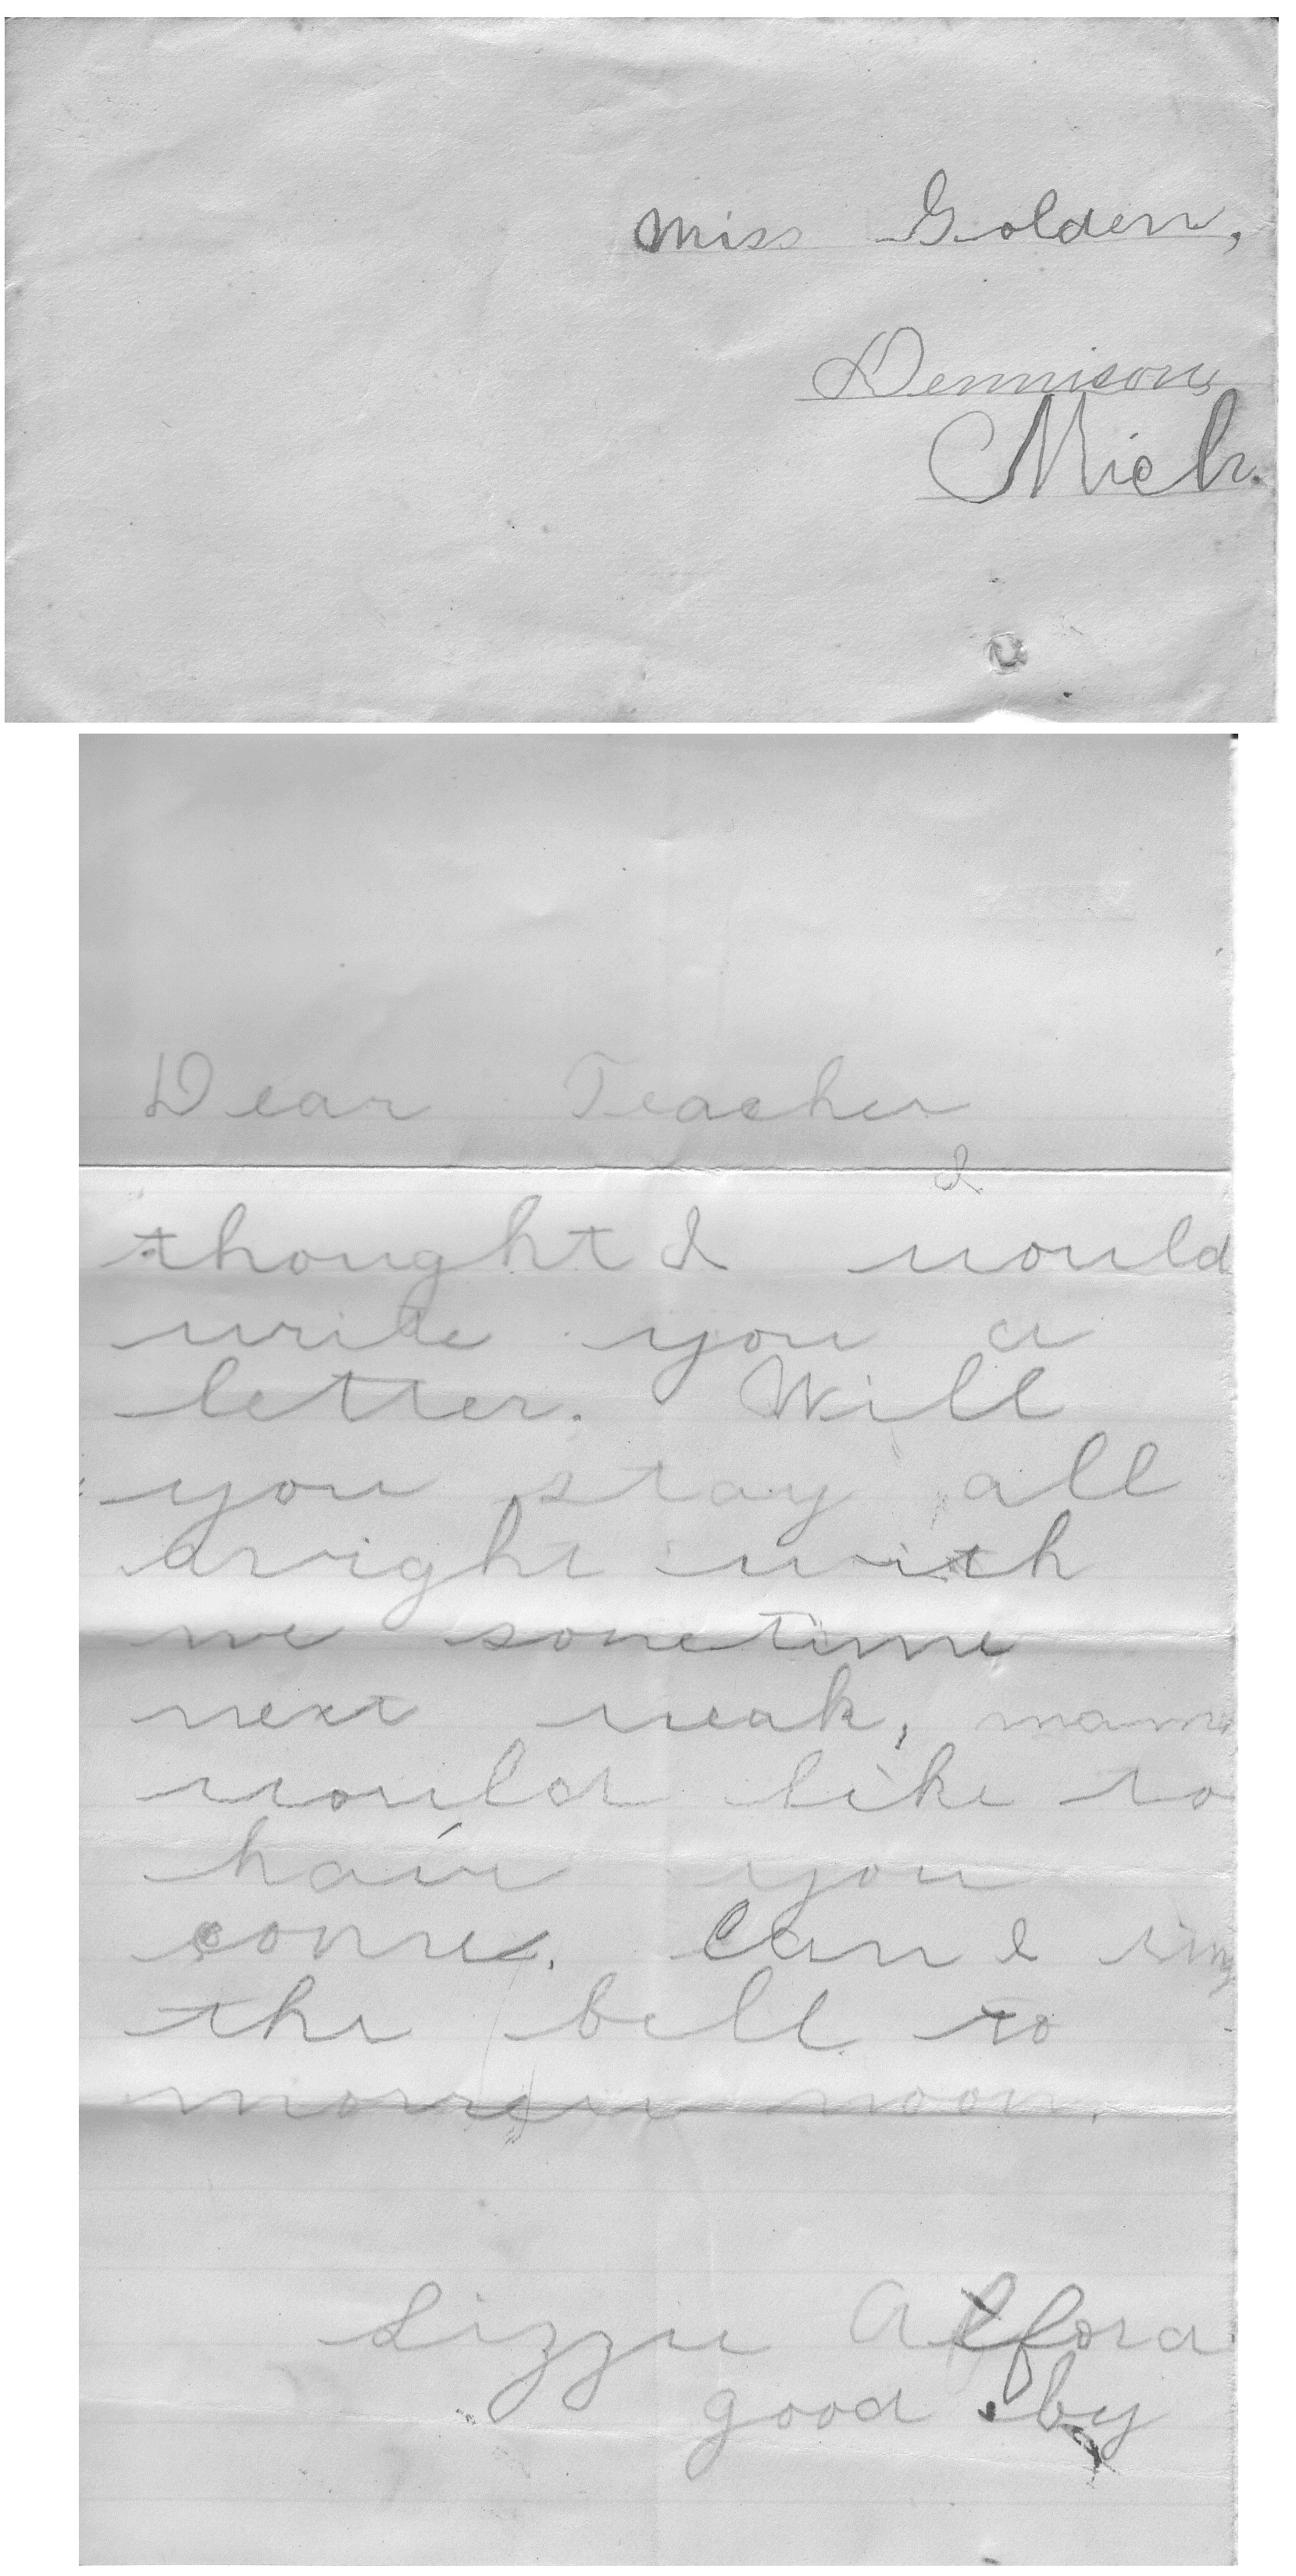 Miss Golden,
Dennison,
Mich.
Dear Teacher
I
thought I would
write you a
letter. Will
you stay all
nright with
me sometime
next weak,
would like to
have you
come. Can I ring
the bell to
morrow noon.
Lizzie Alford
good by